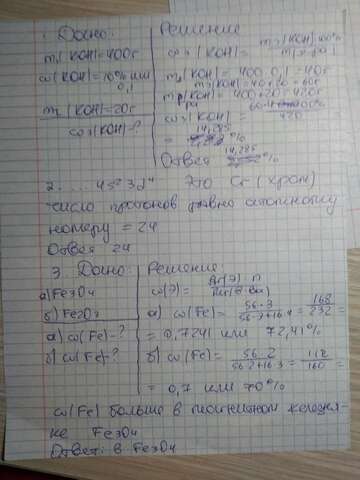 1. Дано:
m₁(KOH)=400г
ω(KOH)=10% или 0,1
m₂(KOH)=20г
ω₃(KOH)-?
Решение
ω₃(KOH)=
m₁(KOH)=400·0,1=40г
m₃(KOH)=40+20=60г
m(KOH)=400+20=420г
ω₃(KOH)= 420
= 14,285 %
Ответ 14,285 %
2. ... 4s² 3d⁴ это Cr (хром)
число протонов равно атомному
номеру = 24
Ответ 24
3. Дано:
а) Fe₃O₄
б) Fe₂O₃
а) ω(Fe)-?
б) ω(Fe)-?
Решение:
ω(Э)= Ar(Э)·n
а) ω(Fe)= 56·3 / 56·3+16·4 = 168 / 232 =
= 0,7241 или 72,41%
б) ω(Fe)= 56·2 / 56·2+16·3 = 112 / 160 =
= 0,7 или 70%
ω(Fe) больше в магнитном железня-
ке Fe₃O₄
Ответ: в Fe₃O₄